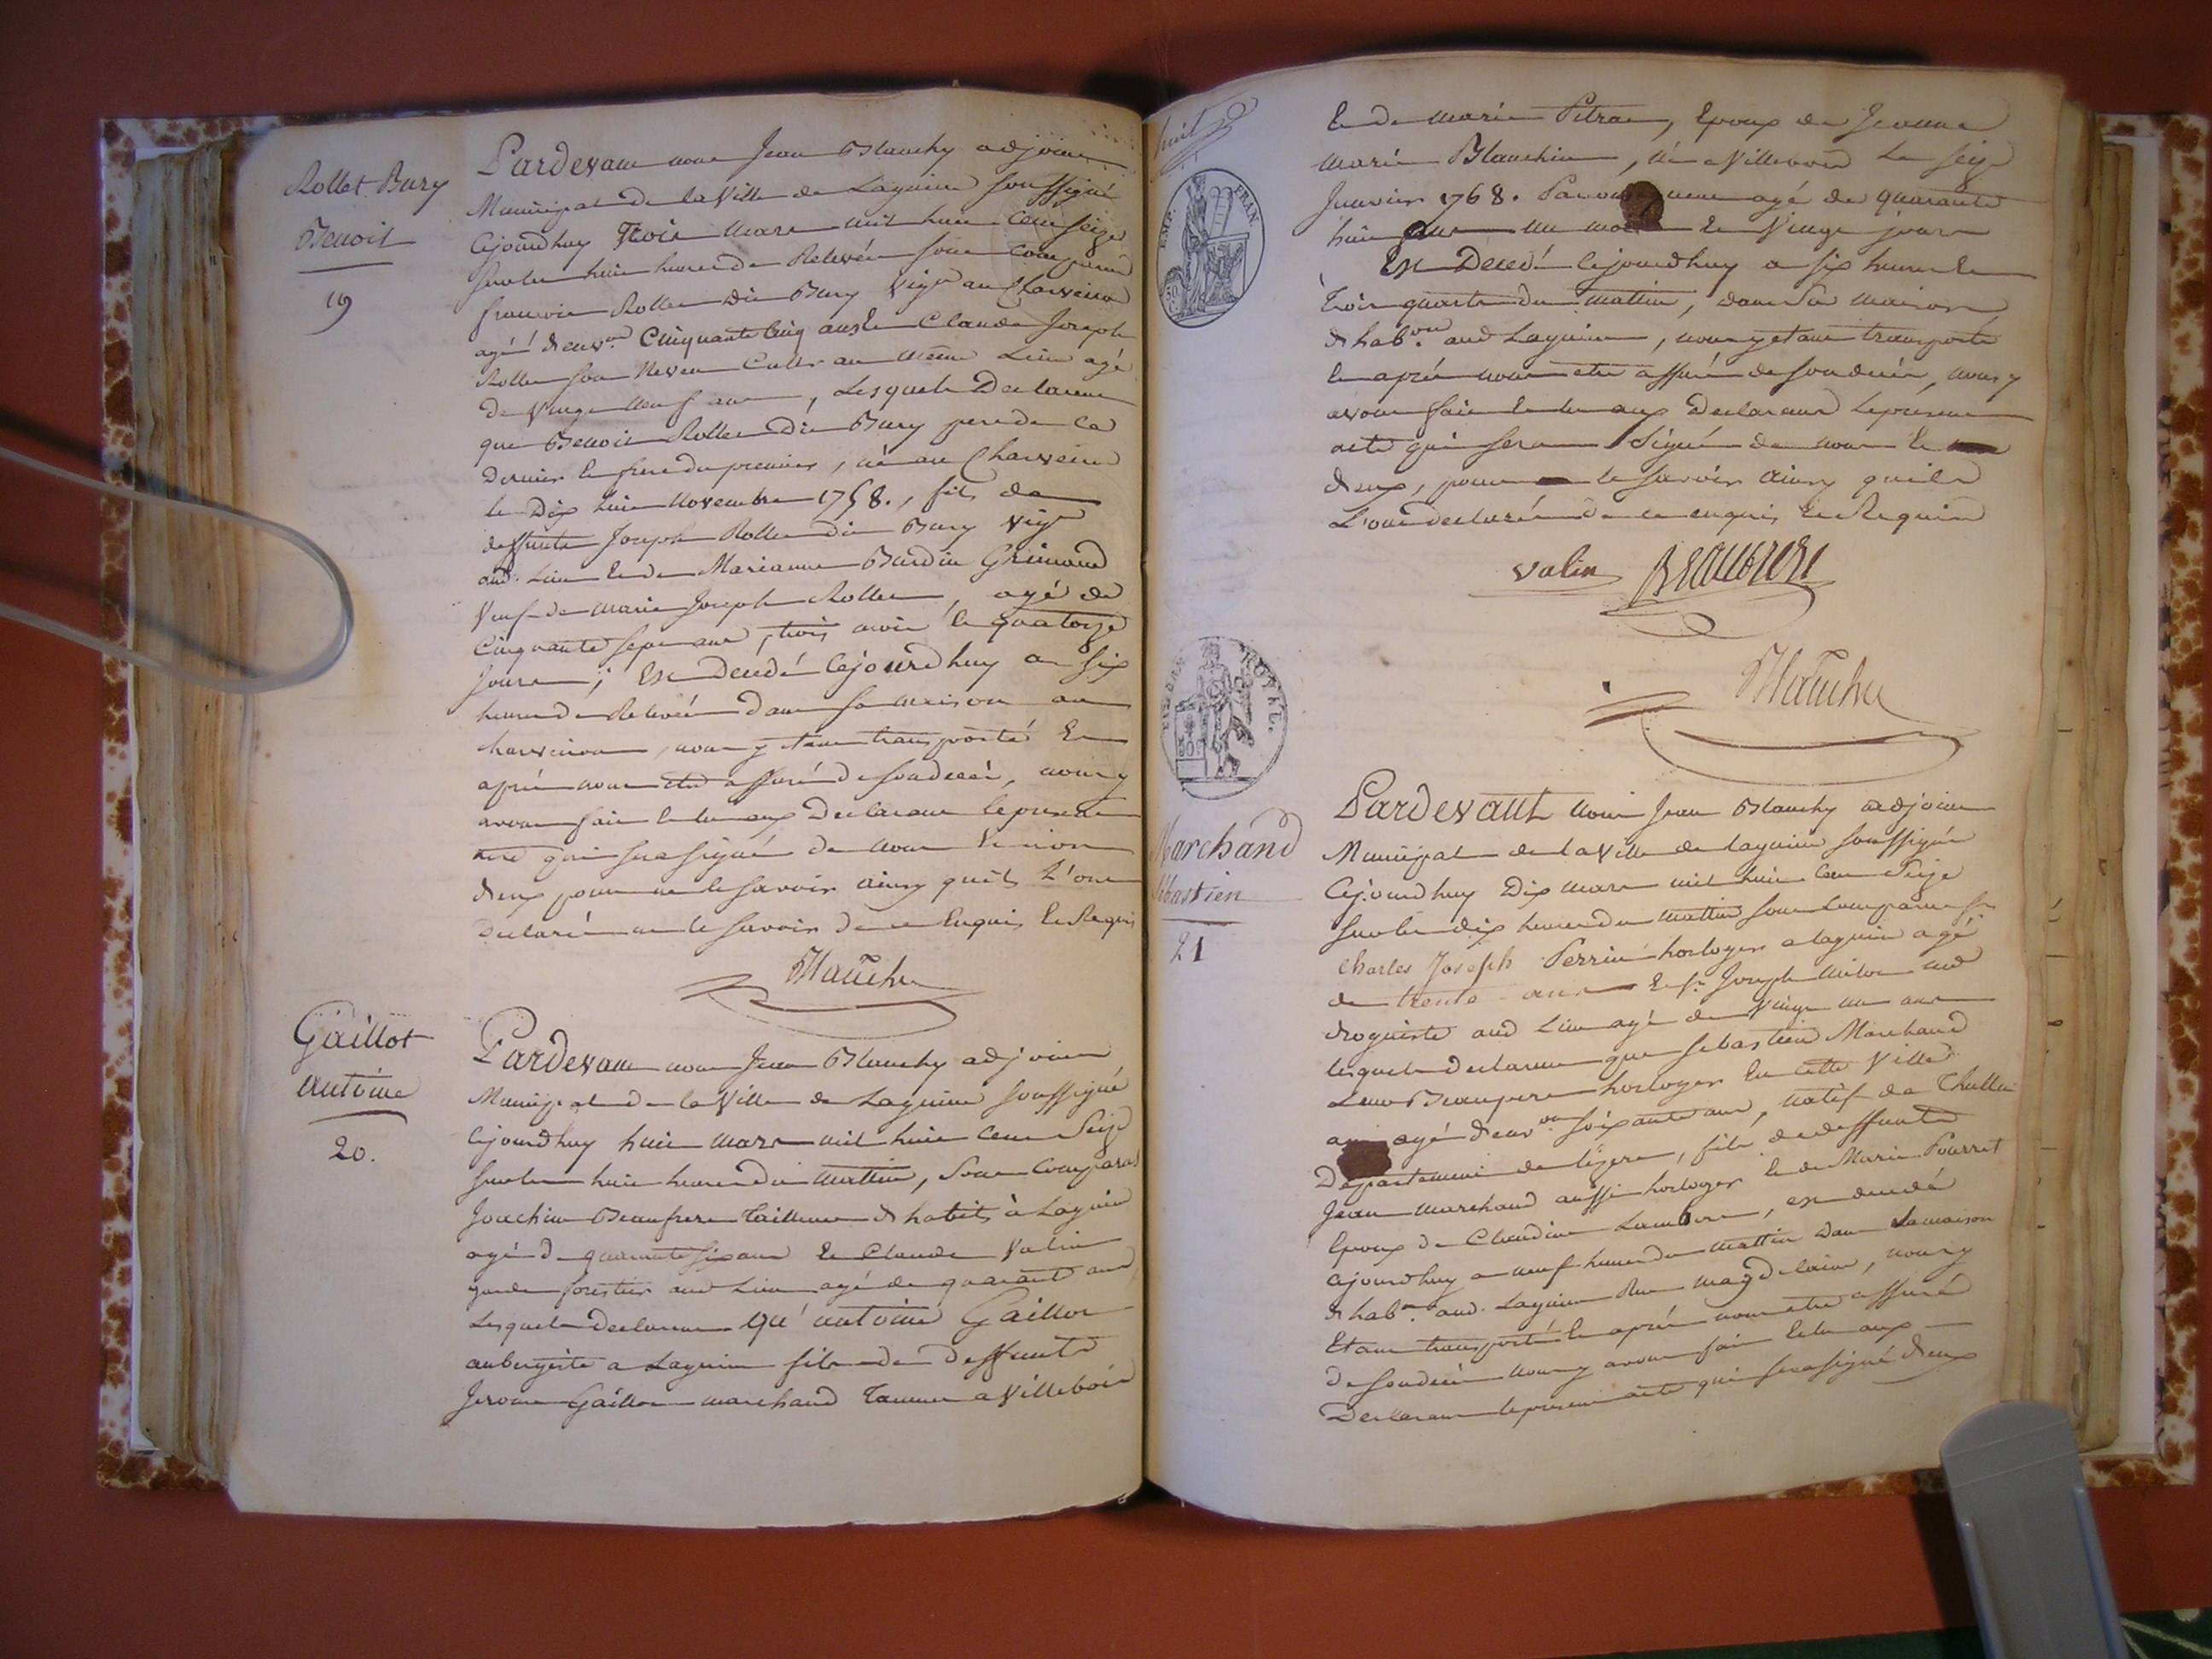 Rollet Bury
Benoit
19
Pardevant nous Jean Blanchy adjoint
Municipal de la Ville de Lagnieu soussigné
Cejourdhuy Trois mars mil huit cent seize
sur les huit heures de Relevée sont comparus
francois Rollet dit Bury vign au Charveiron
agé d'env.on Cinquante Cinq ans et Claude Joseph
Rollet son Neveu Cultr au même Lieu agé
de vingt neuf ans, Lesquels Declarent
que Benoit Rollet dit Bury pere de ce
dernier et frere du premier, né au Charveiron
le Dix huit novembre 1758., fils de
deffunts Joseph Rollet dit Bury vign
aud. Lieu et de Marianne Bardin Grimand
veuf de marie Joseph Rollet, agé de
Cinquante sept ans, trois mois et quatorze
jours; Est decedé Cejourdhuy a six
heures de Relevée dans sa maison au
charveiron, nous y etant transporté et
aprés nous etre assuré de son decès, nous y
avons fait et lu aux Declarans le present
acte qui sera signé de nous et non
d'eux pour ne le savoir ainsy quils L'ont
declaré ne le savoir de ce Enquis et Requis
Blanchy
Gaillot
antoine
20.
Pardevant nous Jean Blanchy adjoint
Municipal de la Ville de Lagnieu soussigné
Cejourdhuy huit mars mil huit cent Seize
sur les huit heures du mattin, sont Comparus
Joachim Beaufrere tailleur d'habits à Lagnieu
agé de quarante six ans et Claude Valin
garde forestier aud Lieu agé de quarant ans
Lesquels declarent qu'antoine Gaillot
aubergiste a Lagnieu fils de deffunts
Jerome Gaillot marchand Tanneur a Villebois
huit
EMP. FRAN.
et de marie Pitrae, Epoux de Jeanne
marie Blanchin, né a Villebois Le seize
Janvier 1768. agé de quarante
huit ans un mois et vingt jours
Est Decedé cejourdhuy a six heures et
trois quarts du mattin, dans sa maison
d'hab.on aud Lagnieu, nous y etant transporté
et aprés nous etre assuré de son decès, nous y
avons fait et lu aux Declarans le present
acte qui sera signé de nous et
d'eux, pour le savoir ainsy quils
L'ont declaré de ce enquis et Requis
Valin Beaufrere
Blanchy
ROYAL.
Marchand
Sébastien
21
Pardevant nous Jean Blanchy adjoint
Municipal de la Ville de lagnieu soussigné
Cejourdhuy Dix mars mil huit Cent Seize
sur les dix heures du mattin sont comparus sr
Charles Joseph Perrin horloger a lagnieu agé
de trente ans et sr Joseph
droguiste aud Lieu agé de vingt un ans
lesquels declarent que sebastien Marchand
Leur Beaupere horloger En cette Ville
agé d'env.on soixante ans, natif de Thullin
Departement de lizere, fils de deffunts
Jean Marchand aussi horloger et de Marie Pourret
Epoux de Claudine Lambert, est decedé
ajourdhuy a neuf heures du mattin dans sa maison
d'hab.on aud. Lagnieu Rue magdelaine, nous y
Etant transporté et aprés nous etre assuré
de son decès nous y avons fait et lu aux
Declarans le present acte qui sera signé d'eux